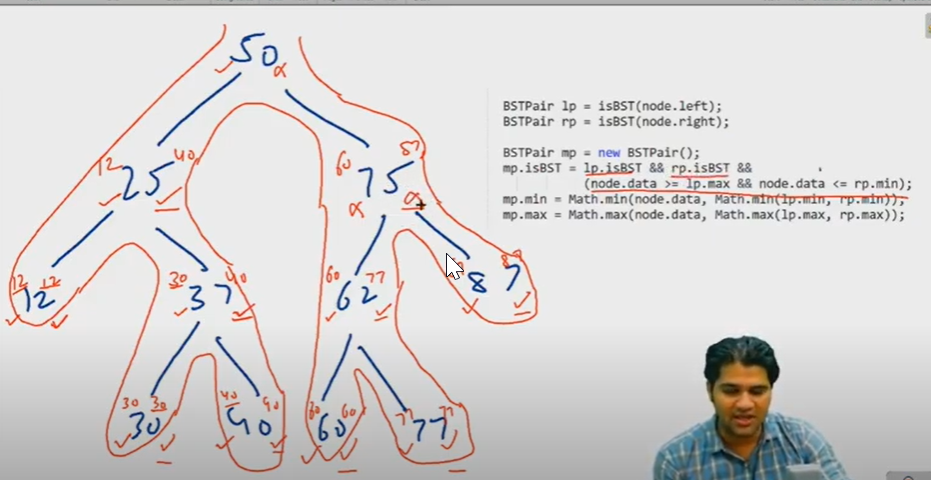 50
α
12 25 40
60 75 87
α α
12 12
12
30 37 40
60 62 77
87 87
30 30
30
40 40
40
60 60
60
77 77
77
BSTPair lp = isBST(node.left);
BSTPair rp = isBST(node.right);
BSTPair mp = new BSTPair();
mp.isBST = lp.isBST && rp.isBST &&
(node.data >= lp.max && node.data <= rp.min);
mp.min = Math.min(node.data, Math.min(lp.min, rp.min));
mp.max = Math.max(node.data, Math.max(lp.max, rp.max));